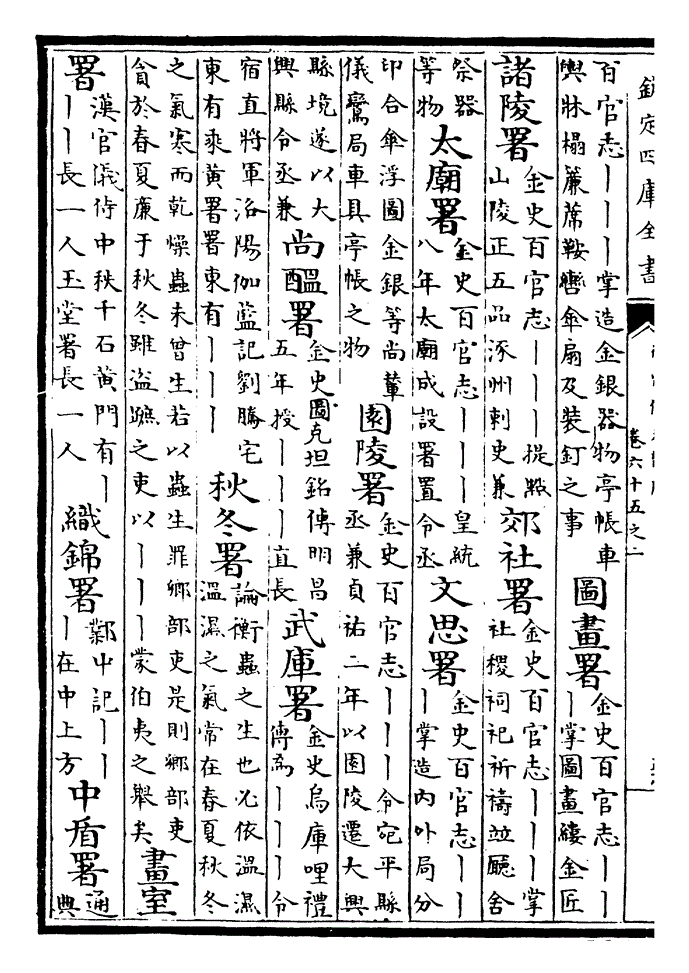 欽定四庫全書
卷六十五之二
百官志丨丨丨掌造金銀器物亭帳車
輿牀榻簾蓆鞍轡傘扇及裝釘之事
圖畫署
金史百官志丨丨
丨掌圖畫縷金匠
諸陵署
金史百官志丨丨丨提點
山陵正五品涿州刺史兼
郊社署
金史百官志丨丨丨掌
社稷祠祀祈禱竝廳舍
祭器
等物
太廟署
金史百官志丨丨丨皇統
八年太廟成設署置令丞
文思署
金史百官志丨丨
丨掌造内外局分
印合傘浮圖金銀等尚輦
儀鸞局車具亭帳之物
園陵署
金史百官志丨丨丨令宛平縣
丞兼貞祐二年以園陵遷大興
縣境遂以大
興縣令丞兼
尚醞署
金史圖克坦銘傳明昌
五年授丨丨丨直長
武庫署
金史烏庫哩禮
傳為丨丨丨令
宿直將軍洛陽伽藍記劉騰宅
東有乘黃署署東有丨丨丨
秋冬署
論衡蟲之生也必依溫濕
溫濕之氣常在春夏秋冬
之氣寒而乾燥蟲未曾生若以蟲生罪鄉部吏是則鄉部吏
貪於春夏廉于秋冬雖盜蹠之吏以丨丨丨蒙伯夷之舉矣
畫室
署
漢官儀侍中秩千石黃門有丨
丨丨長一人玉堂署長一人
織錦署
鄴中記丨丨
丨在中上方
中盾署
通
典